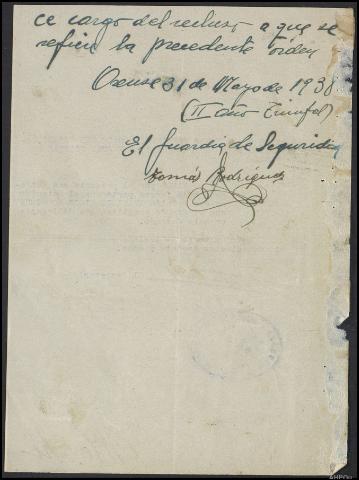 ce cargo del recluso a que se
refiere la precedente orden
Orense 31 de Mayo de 1938
(II año Triunfal)
El Guardia de Seguridad
Tomás Rodríguez
AHPOu